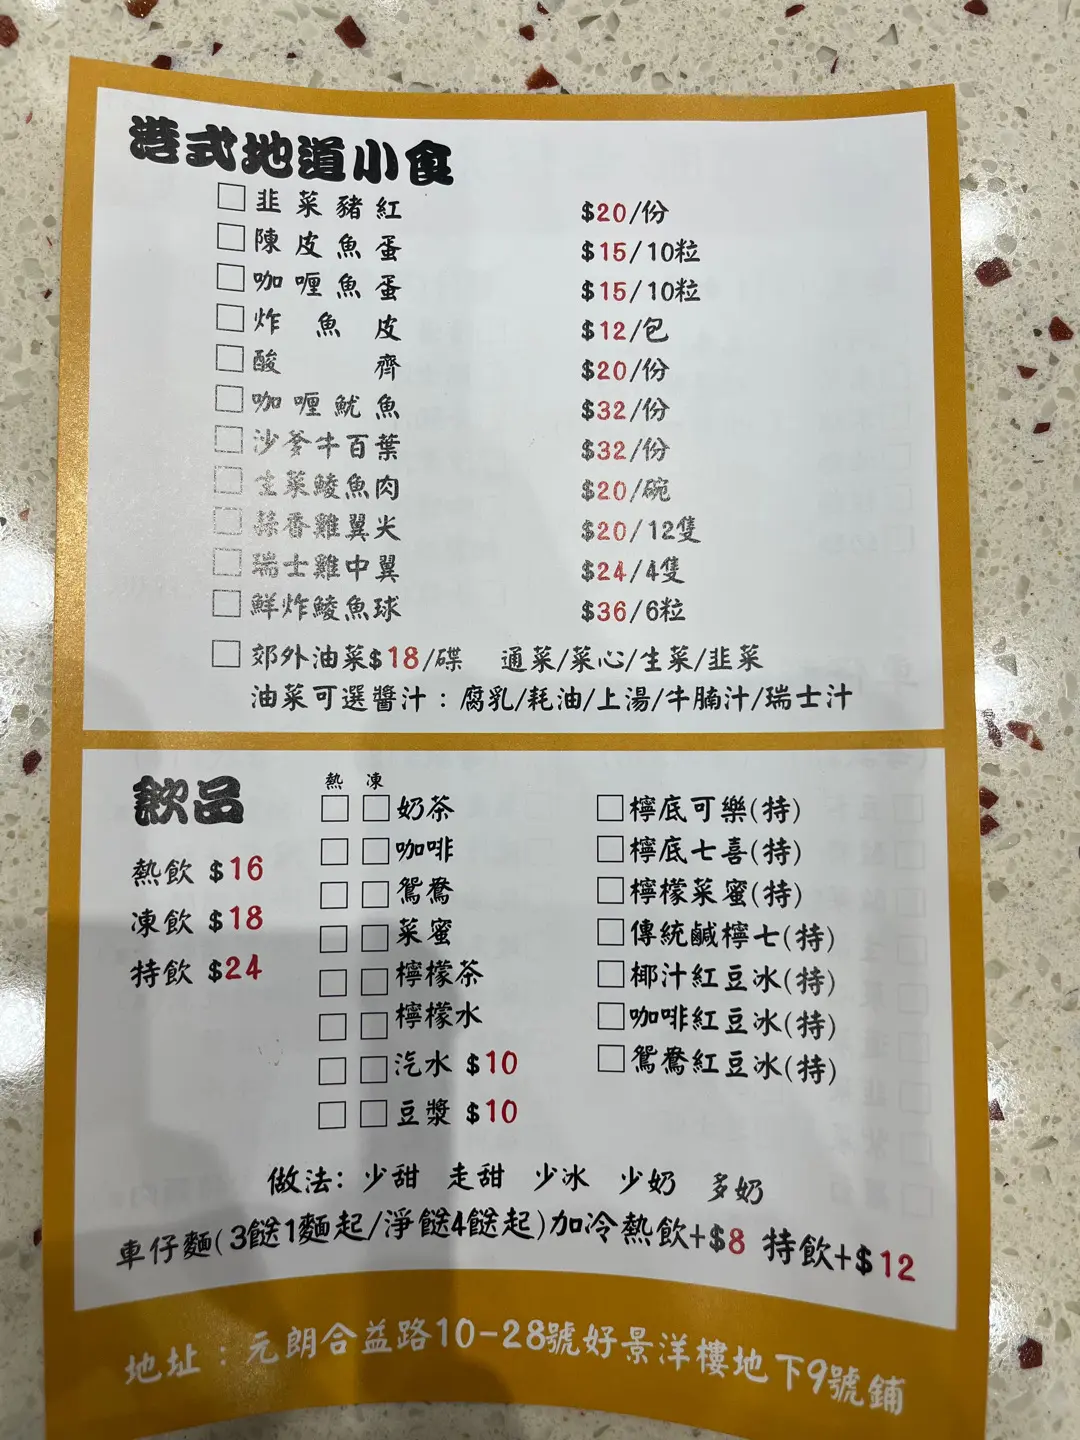 港式地道小食
韭菜豬紅 $20/份
陳皮魚蛋 $15/10粒
咖喱魚蛋 $15/10粒
炸魚皮 $12/包
酸齊 $20/份
咖喱魷魚 $32/份
沙爹牛百葉 $32/份
生菜鯪魚肉 $20/碗
蒜香雞翼尖 $20/12隻
瑞士雞中翼 $24/4隻
鮮炸鯪魚球 $36/6粒
郊外油菜$18/碟 通菜/菜心/生菜/韭菜
油菜可選醬汁:腐乳/耗油/上湯/牛腩汁/瑞士汁
飲品
熱飲 $16
凍飲 $18
特飲 $24
熱 凍
奶茶
咖啡
鴛鴦
菜蜜
檸檬茶
檸檬水
汽水 $10
豆漿 $10
檸底可樂(特)
檸底七喜(特)
檸檬菜蜜(特)
傳統鹹檸七(特)
椰汁紅豆冰(特)
咖啡紅豆冰(特)
鴛鴦紅豆冰(特)
做法: 少甜 走甜 少冰 少奶 多奶
車仔麵(3餸1麵起/淨餸4餸起)加冷熱飲+$8 特飲+$12
地址:元朗合益路10-28號好景洋樓地下9號鋪